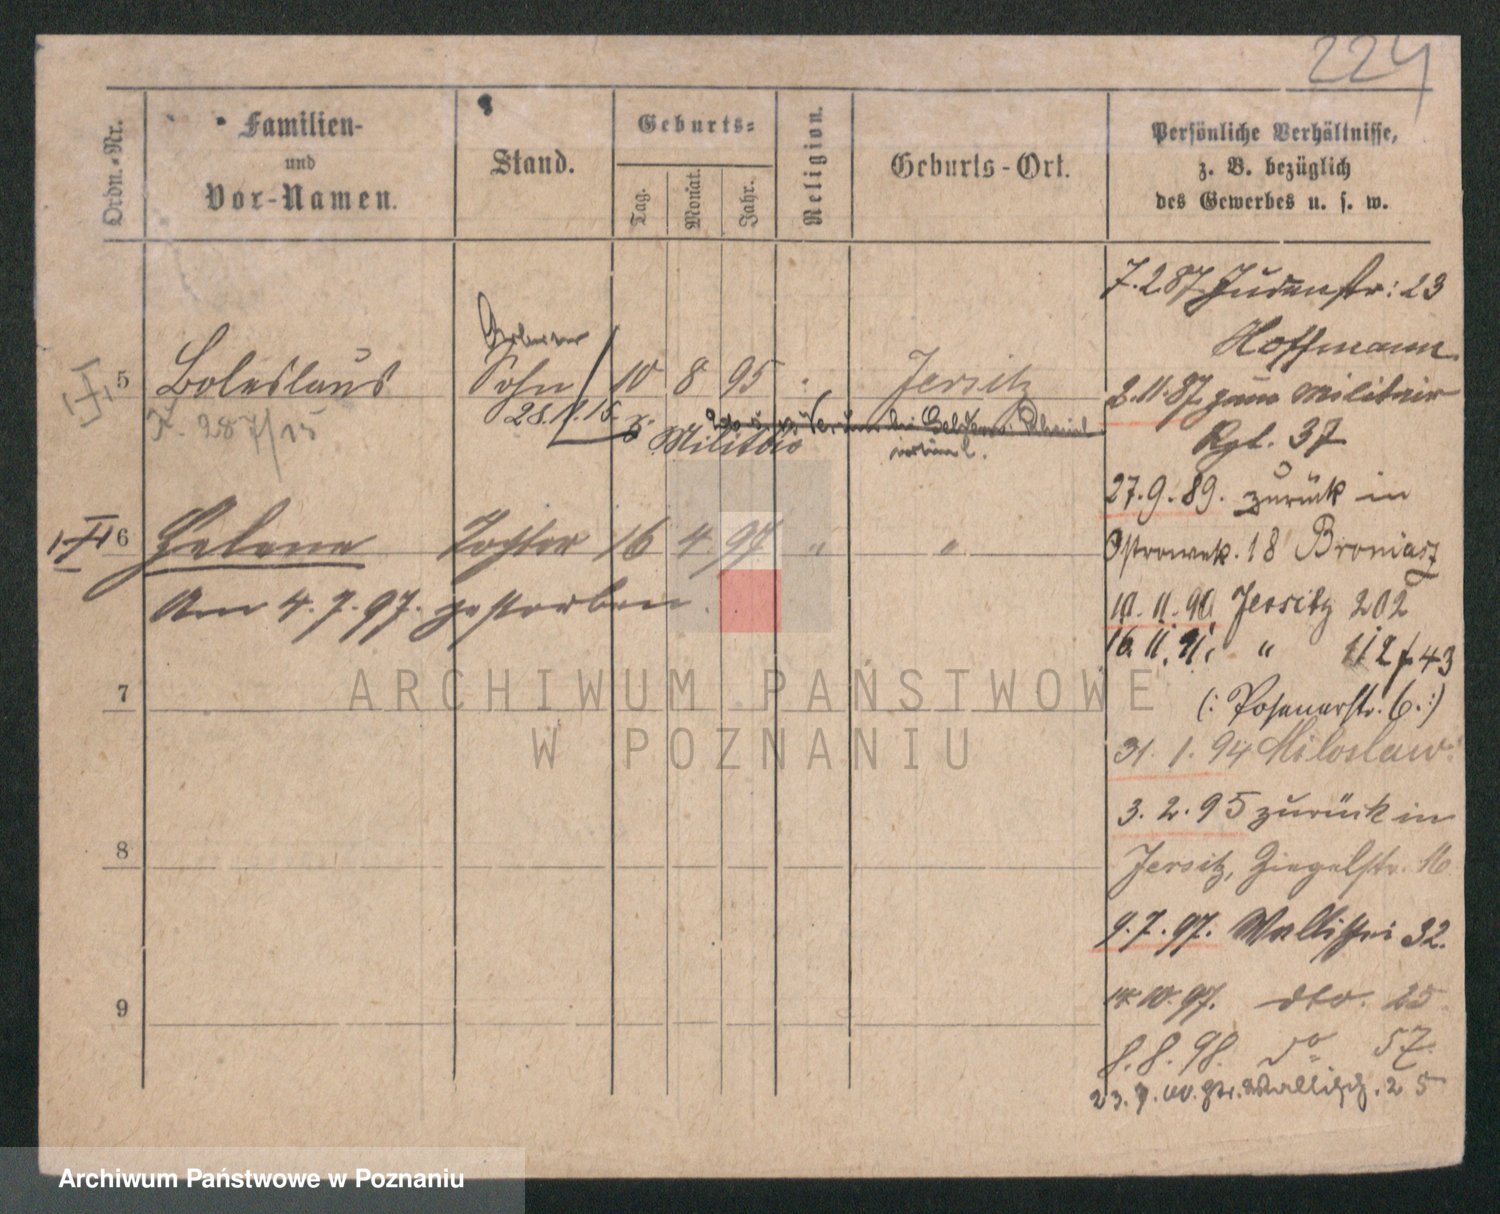 224
Ordn.-Nr.
Familien-
und
Vor-Namen.
Stand.
Geburts-
Tag.
Monat.
Jahr.
Religion.
Geburts-Ort.
Persönliche Verhältnisse,
z. B. bezüglich
des Gewerbes u. s. w.
7.2.87 Judenstr: 23
Hoffmann
5 Boleslaus Sohn 10 8 95 Jersitz
2.11.87 zum Militair
Rgt. 37
28. 15. z. Militär
27.9.89. zurück in
6 Helene Tochter 16 4. 97 " "
Ostrowek. 18 Broniasz
Am 4.7.97. gestorben.
10.11.90. Jersitz 202
16.11.91. " 112 f 43
(: Posenerstr. 6. :)
7
31.1.94 Miloslaw.
3.2.95 zurück in
8
Jersitz, Ziegelstr. 16
9.7.97. Wallischei 32.
14.10.97. dto. 25
9
8.8.98. do 57.
23. Wallisch. 25
ARCHIWUM PAŃSTWOWE
W POZNANIU
Archiwum Państwowe w Poznaniu